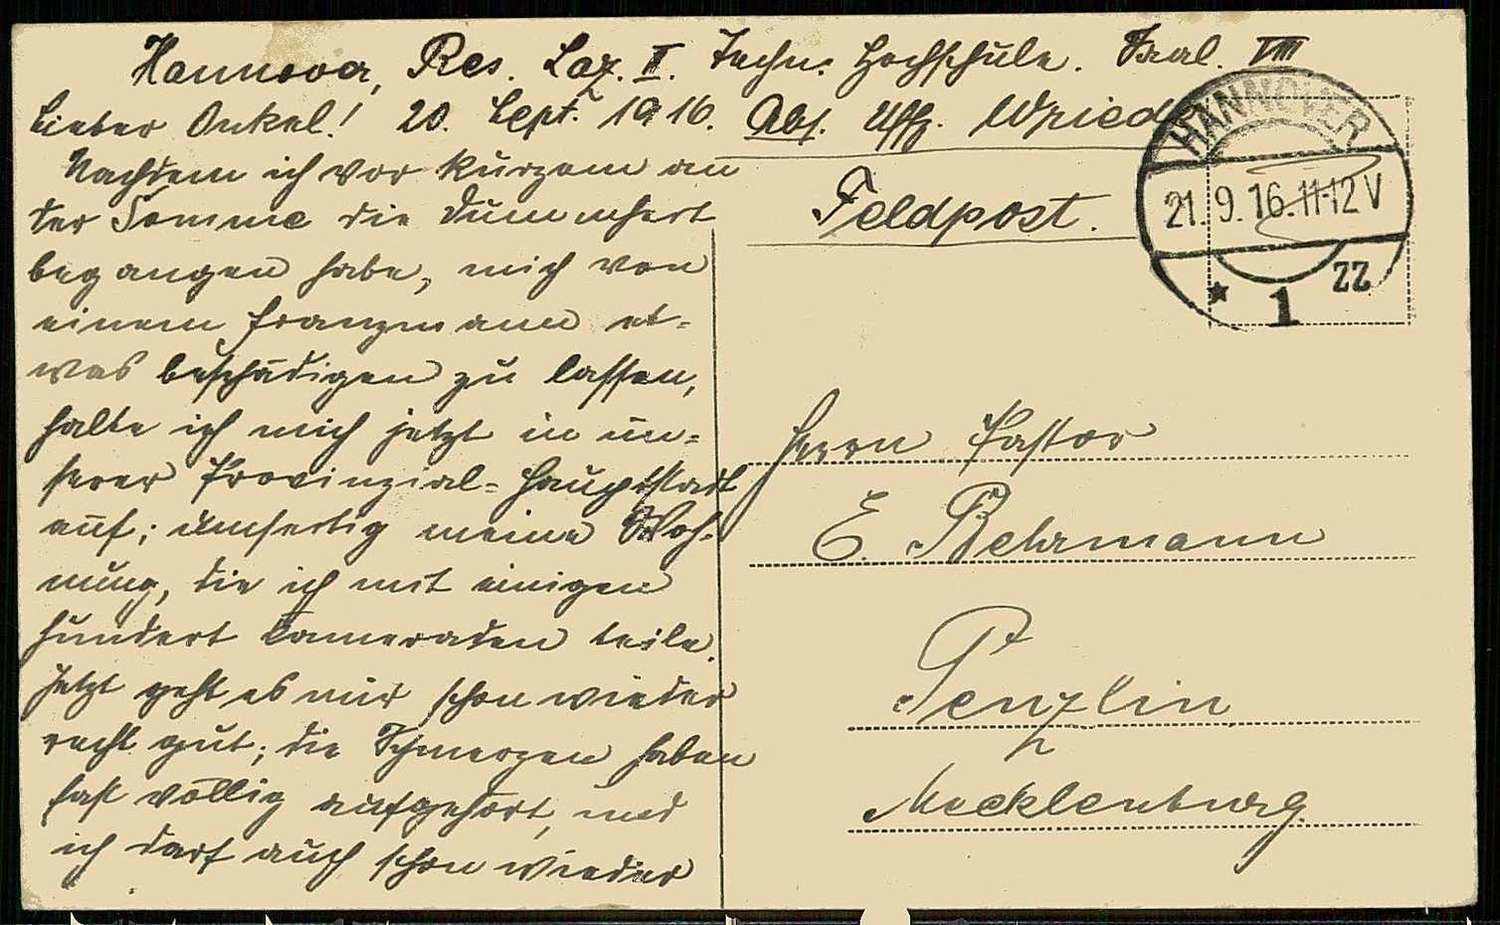 Hannover, Res. Laz. II. Techn. Hochschule. Saal. VIII
Lieber Onkel! 20. Sept. 1916. Abs. Uffz. Wried
Nachdem ich vor kurzem an
der Somme die Dummheit
begangen habe, mich von
einem Franzmann et-
was beschädigen zu lassen,
halte ich mich jetzt in un-
serer Provinzial-Hauptstadt
auf; umseitig meine Woh-
nung, die ich mit einigen
hundert Kameraden teile.
Jetzt geht es mir schon wieder
recht gut; die Schmerzen haben
fast völlig aufgehört, und
ich darf auch schon wieder
Feldpost.
HANNOVER
21.9.16.11-12V
* 1 zz
Herrn Pastor
E. Behrmann
Penzlin
Mecklenburg